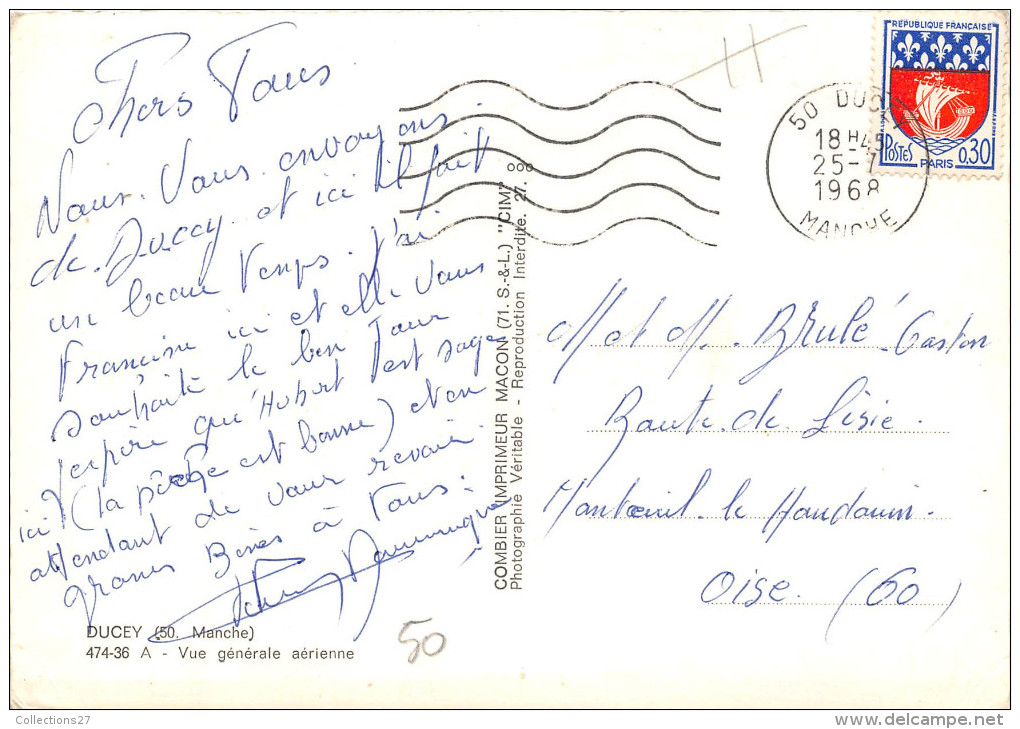 Chers Tous
Nous Vous envoyons
de Ducey et ici il fait
un beau temps. J'ai
Francine ici et elle vous
souhaite le bon Jour
J'espère qu'Hubert est sage
ici (la pêche est bonne) et en
attendant de vous revoir
grosses Bises à Tous:
DUCEY (50. Manche)
474-36 A - Vue générale aérienne
50
COMBIER IMPRIMEUR MACON (71. S.-&-L.) "CIM"
Photographie Véritable - Reproduction Interdite. 27.
RÉPUBLIQUE FRANÇAISE
POSTES PARIS 0,30
50 DUCEY
18 H 45
25-7
1968
MANCHE
M et M. Brulé Gaston
Route de
Nanteuil le Haudouin.
Oise. (60)
Collections27
delcampe.net